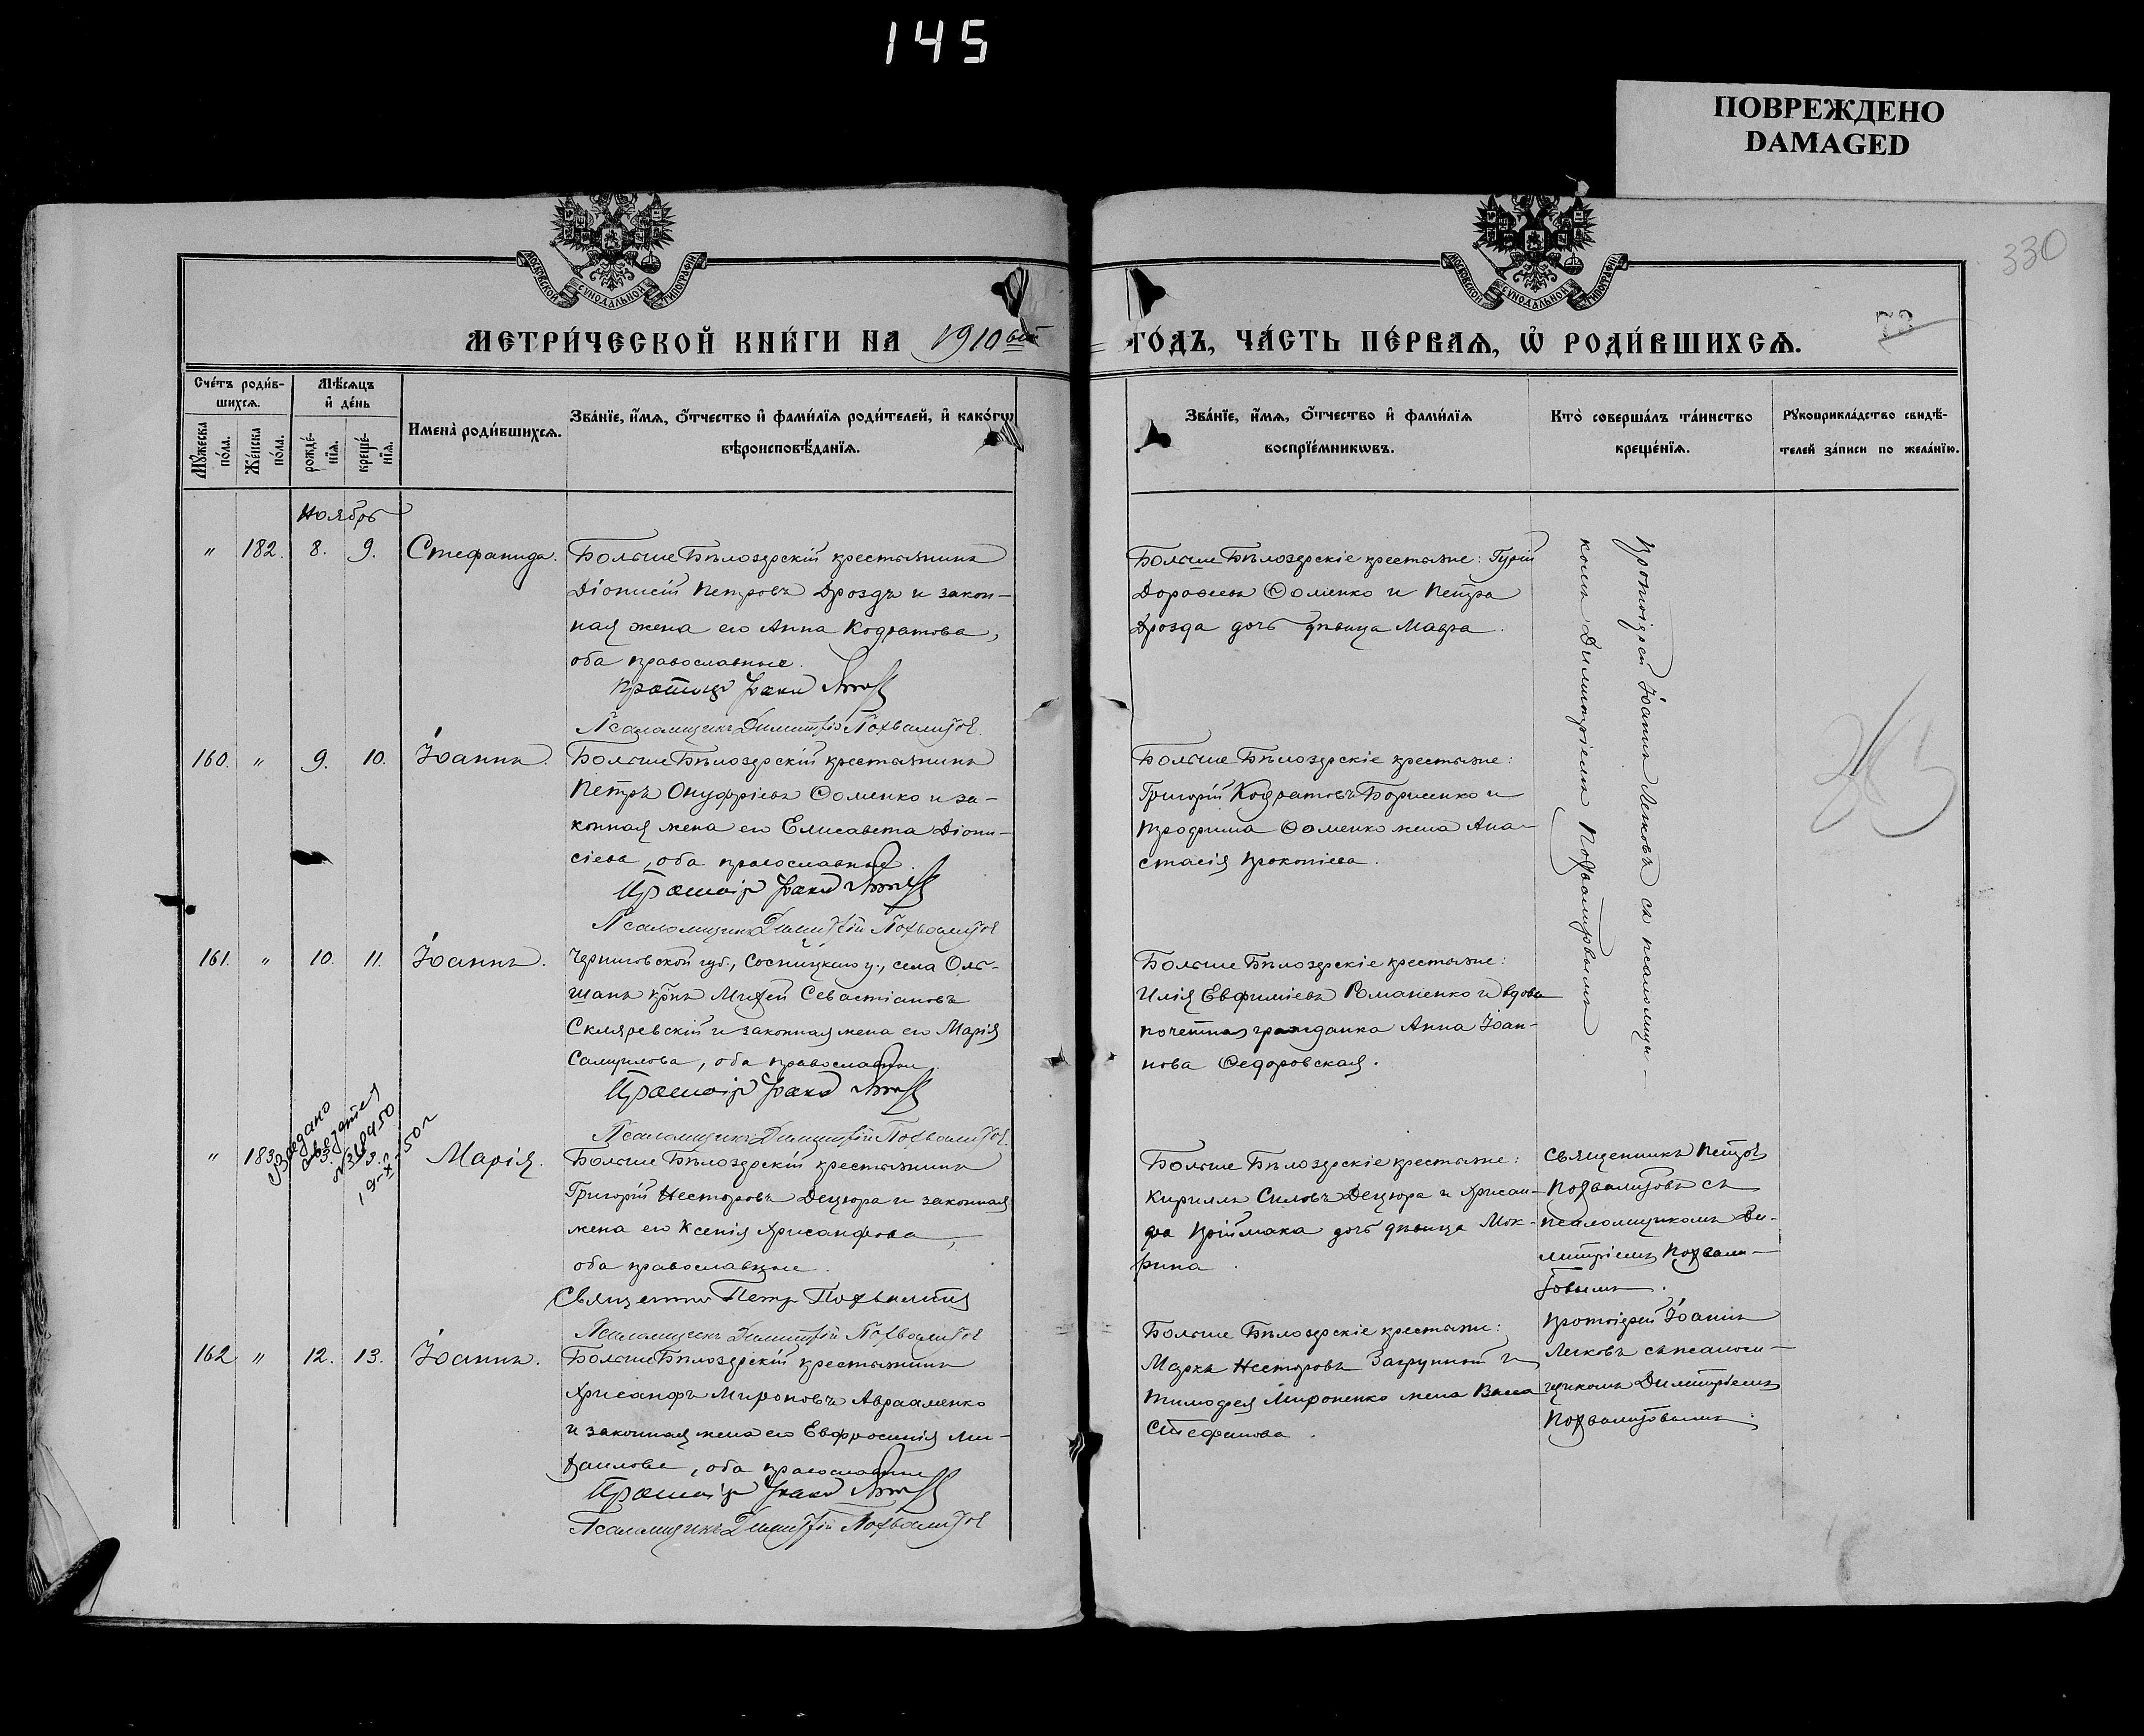 145
ПОВРЕЖДЕНО
DAMAGED
330
МОСКОВСКОЙ СУНОДАЛЬНОЙ ТИПОГРАФІИ
МОСКОВСКОЙ СУНОДАЛЬНОЙ ТИПОГРАФІИ
МЕТРИ́ЧЕСКОЙ КНИ́ГИ НА 1910ый
ГО́ДЪ, ЧА́СТЬ ПЕ́РВАѦ, Ѡ҆ РОДИ́ВШИХСѦ.
Сче́тъ роди́в-
шихсѧ.
Мѣ́сѧцъ
и҆ де́нь
Мꙋ́жеска по́ла.
Же́нска по́ла.
рожде́-нїѧ.
креще́-нїѧ.
Имена̀ роди́вшихсѧ.
Зва́нїе, и҆́мѧ, ѻ҆́тчество и҆ фами́лїѧ роди́телей, и҆ како́гѡ
вѣроисповѣ́данїѧ.
Зва́нїе, и҆́мѧ, ѻ҆́тчество и҆ фами́лїѧ
воспрїе́мникѡвъ.
Кто̀ соверша́лъ та́инство
креще́нїѧ.
Рꙋкоприкла́дство свидѣ́-
телей за́писи по жела́нїю.
Ноябрь
" 182. 8. 9. Стефанида.
Больше Бѣлозерскій крестьянинъ
Діонисій Петровъ Дроздъ и закон-
ная жена его Анна Кодратова,
оба православные.
Псаломщикъ Димитрій Похвалитовъ
Больше Бѣлозерскіе крестьяне: Гурій
Дорофеевъ Ѳоменко и Петра
Дрозда дочь дѣвица Мавра.
Протоіерей Іоаннъ Лепковъ съ псаломщи-
комъ Димитріемъ Похвалитовымъ
160. " 9. 10. Іоаннъ.
Больше Бѣлозерскій крестьянинъ
Петръ Онуфріевъ Ѳоменко и за-
конная жена его Елисавета Діони-
сіева, оба православные.
Псаломщикъ Димитрій Похвалитовъ
Больше Бѣлозерскіе крестьяне:
Григорій Кодратовъ Борисенко и
Трофима Ѳоменко жена Ана-
стасія Прокопіева.
161. " 10. 11. Іоаннъ.
Черниговской губ., Сосницкаго у., села Оль-
шанъ крнъ Михей Севастіановъ
Скляревскій и законная жена его Марія
Самуилова, оба православные.
Псаломщикъ Димитрій Похвалитовъ
Больше Бѣлозерскіе крестьяне:
Илія Евфиміевъ Романенко и вдова
почетная гражданка Анна Іоан-
нова Ѳедоровская.
" 183. Марія.
Больше Бѣлозерскій крестьянинъ
Григорій Несторовъ Децюра и законная
жена его Ксенія Хрисанфова,
оба православные.
Священникъ Петръ Похвалитовъ
Псаломщикъ Димитрій Похвалитовъ
Больше Бѣлозерскіе крестьяне:
Кириллъ Силовъ Децюра и Хрисан-
фа Приймака дочь дѣвица Мок-
рина.
Священникъ Петръ
Похвалитовъ съ
псаломщикомъ Ди-
митріемъ Похвали-
товымъ.
162 " 12. 13. Іоаннъ.
Больше Бѣлозерскій крестьянинъ
Хрисанфъ Мироновъ Авраменко
и законная жена его Евфросинія Ми-
хаилова, оба православные
Псаломщикъ Димитрій Похвалитовъ
Больше Бѣлозерскіе крестьяне:
Марка Несторовъ Загрунный и
Тимофея Мироненко жена Васса
Стефанова.
Протоіерей Іоаннъ
Лепковъ съ псалом-
щикомъ Димитріемъ
Похвалитовымъ